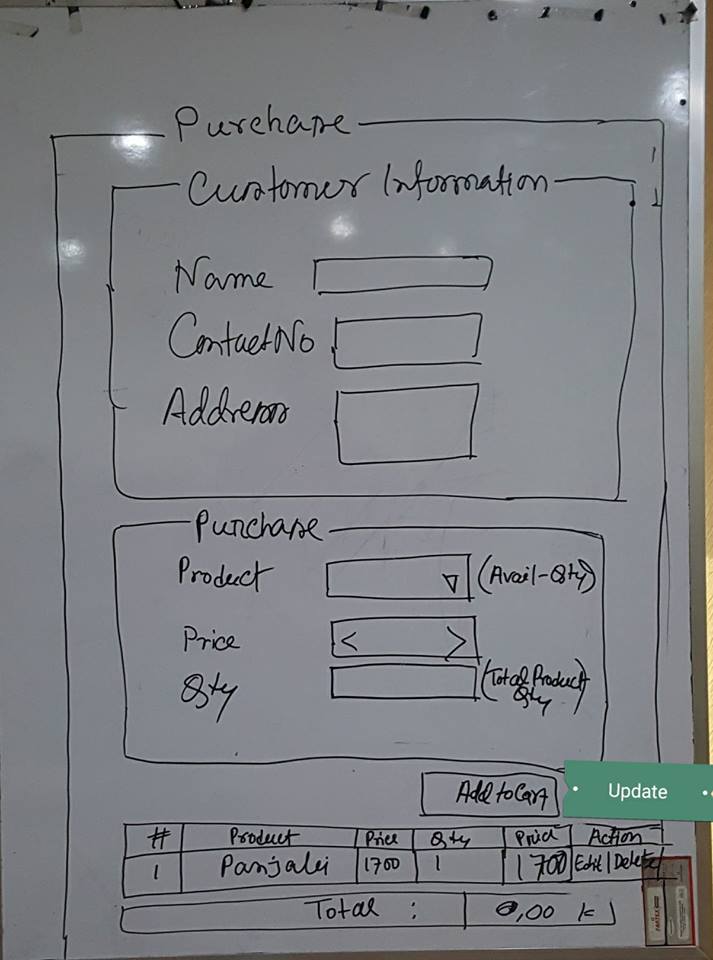 Purchase
Customer Information
Name
Contact No
Address
Purchase
Product (Avail-Qty)
Price < >
Qty (Total Product Qty)
Add to Cart Update
# Product Price Qty Price Action
1 Panjabi 1700 1 1700 Edit | Delete
Total : 0,00